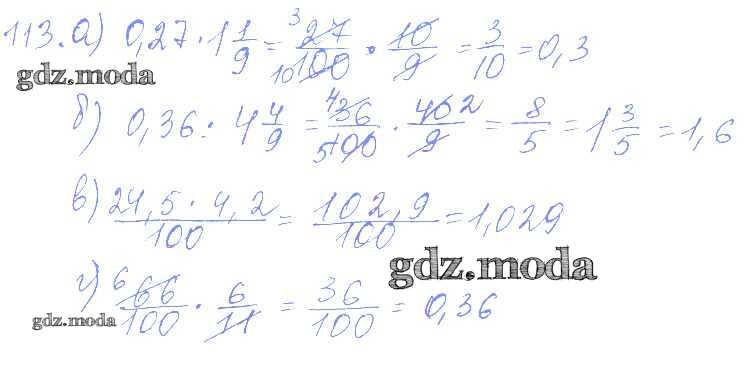 113. а) 0,27 · 1 1/9 = 27/100 · 10/9 = 3/10 = 0,3
gdz.moda
б) 0,36 : 4 4/9 = 36/100 · 40/9 = 8/5 = 1 3/5 = 1,6
в) 24,5 · 4,2/100 = 102,9/100 = 1,029
gdz.moda
г) 66/100 · 6/11 = 36/100 = 0,36
gdz.moda